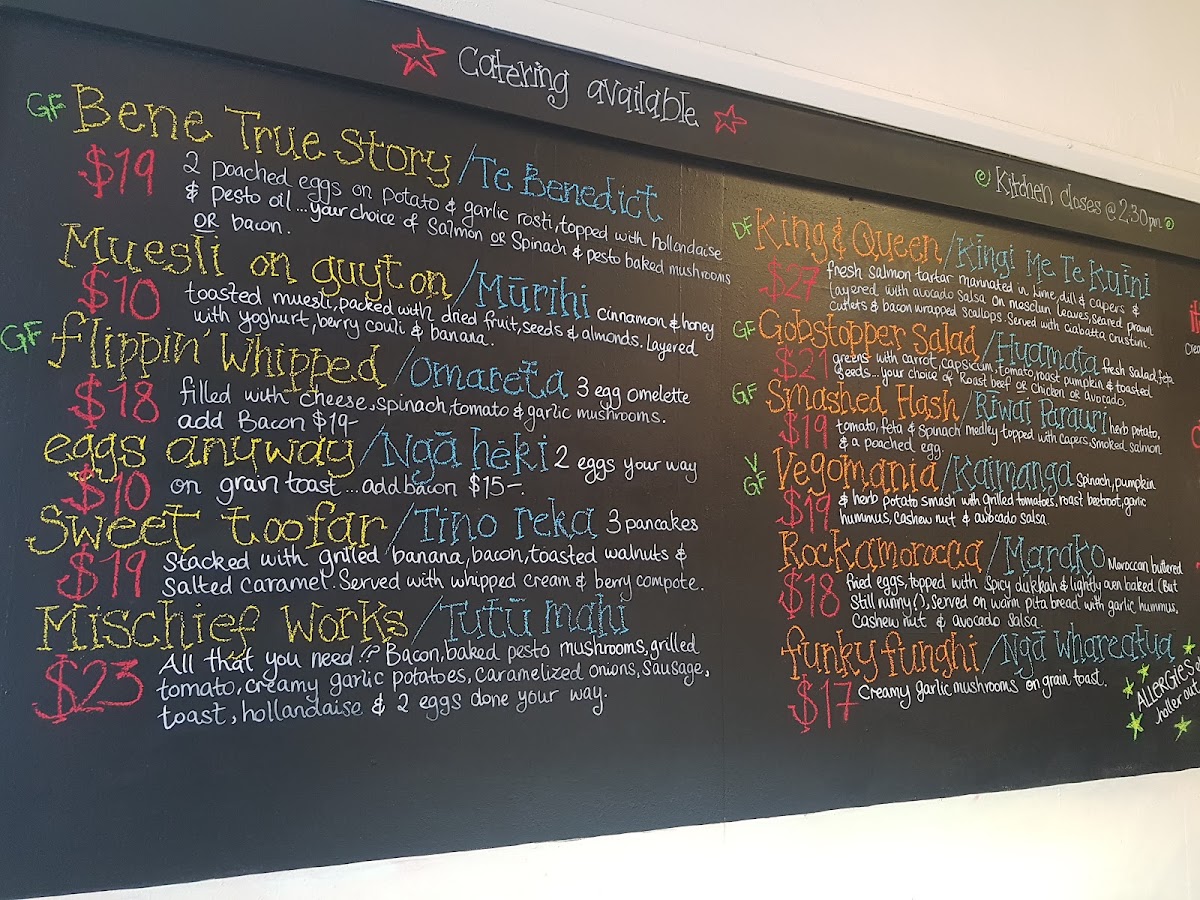 Catering available
GF Bene True Story/Te Benedict
$19 2 poached eggs on potato & garlic rosti, topped with hollandaise
& pesto oil...your choice of Salmon OR Spinach & pesto baked mushrooms
OR bacon.
Muesli on guyton/Mūrihi cinnamon & honey
$10 toasted muesli, packed with dried fruit, seeds & almonds. Layered
with yoghurt, berry couli & banana.
GF flippin' Whipped/Omareta 3 egg omelette
$18 filled with cheese, spinach, tomato & garlic mushrooms.
add Bacon $19-
eggs anyway/Ngā hēki 2 eggs your way
$10 on grain toast...add bacon $15-.
Sweet toofar/Tino reka 3 pancakes
$19 Stacked with grilled banana, bacon, toasted walnuts &
Salted Caramel. Served with whipped cream & berry compote.
Mischief Works/Tutū mahi
$23 All that you need!? Bacon, baked pesto mushrooms, grilled
tomato, creamy garlic potatoes, caramelized onions, Sausage,
toast, hollandaise & 2 eggs done your way.
Kitchen closes @ 2:30pm
DF King & Queen/Kīngi Me Te Kuīni
$27 fresh salmon tartar marinated in lime, dill & capers &
layered with avocado salsa on mesclun leaves, seared prawn
cutlets & bacon wrapped scallops. Served with ciabatta crustini.
GF Gobstopper Salad/Huamata fresh salad, feta
$21 greens with carrot, capsicum, tomato, roast pumpkin & toasted
seeds...your choice of Roast beef OR Chicken OR avocado.
GF Smashed Hash/Rīwai Parauri herb potato,
$19 tomato, feta & Spinach medley topped with capers, smoked salmon
& a poached egg.
V GF Vegomania/Kaimanga Spinach, pumpkin
$19 & herb potato smash with grilled tomatoes, roast beetroot, garlic
hummus, cashew nut & avocado salsa.
Rockamorocca/Marako Moroccan buttered
$18 fried eggs, topped with Spicy dukkah & lightly oven baked. (But
Still runny!), Served on warm pita bread with garlic hummus,
Cashew nut & avocado salsa.
funky funghi/Ngā Whareatua
$17 Creamy garlic mushrooms on grain toast.
ALLERGIES
holler out